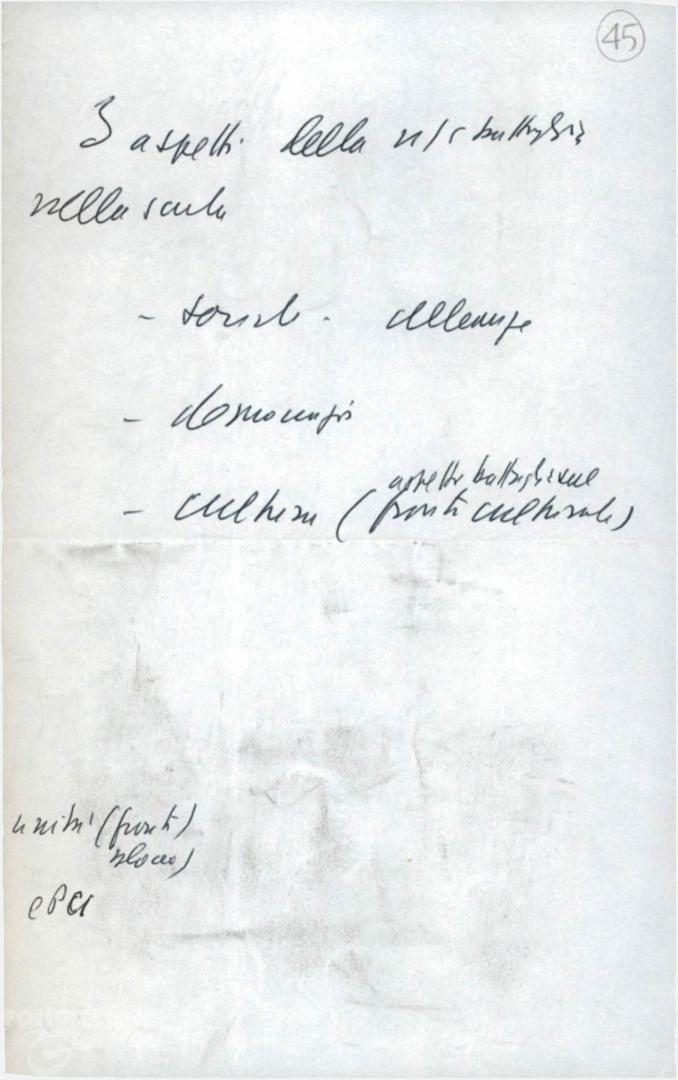 45
3 aspetti della n/s battaglia
nella scuola
- sociale - alleanze
- democrazia
- cultura (fronte culturale)
aspetto battaglia sul
unità (fronte)
blocco)
e PCI